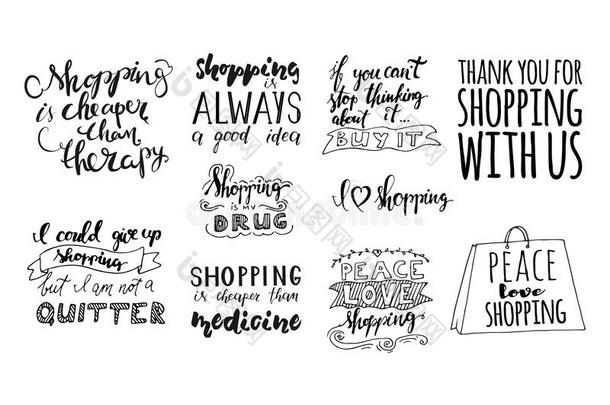 Shopping
is cheaper
than
therapy
shopping
is
ALWAYS
a good idea
if you can't
stop thinking
about it...
BUY IT
THANK YOU FOR
SHOPPING
WITH US
Shopping
is my
DRUG
I shopping
I could give up
shopping
but I am not a
QUITTER
SHOPPING
is cheaper than
medicine
PEACE
LOVE
shopping
PEACE
love
SHOPPING